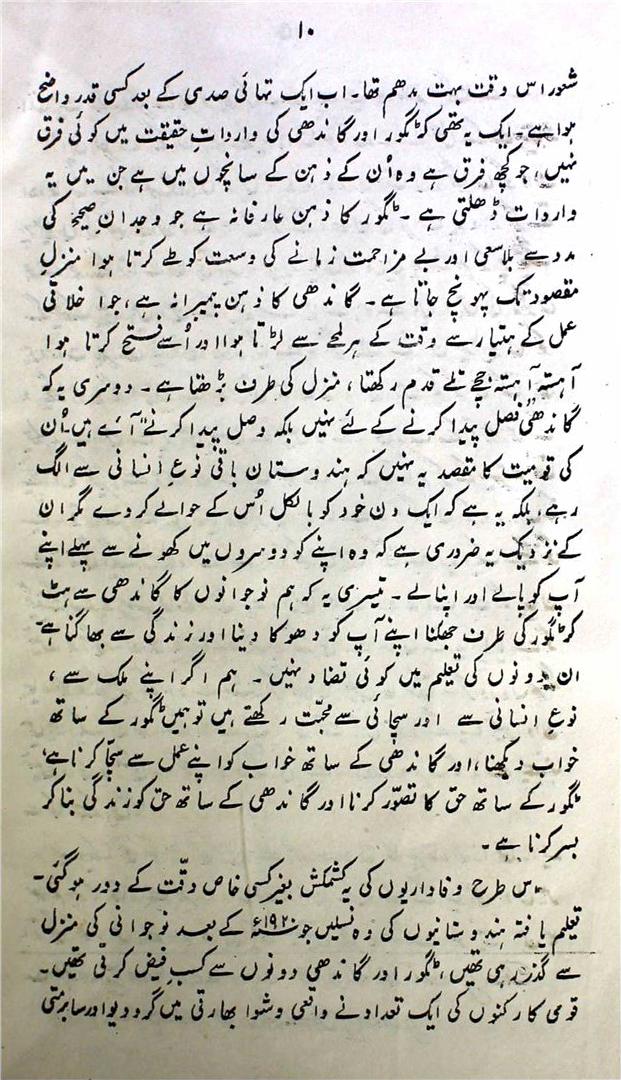 ۱۰
شعور اس وقت بہت مدھم تھا۔ اب ایک تہائی صدی کے بعد کسی قدر واضح
ہوا ہے۔ ایک یہ تھی کہ ٹگور اور گاندھی کی وارداتِ حقیقت میں کوئی فرق
نہیں، جو کچھ فرق ہے وہ اُن کے ذہن کے سانچوں میں ہے جن میں یہ
واردات ڈھلتی ہے۔ ٹگور کا ذہن عارفانہ ہے جو وجدانِ صحیح کی
مدد سے بلاسعی اور بے مزاحمت زمانے کی وسعت کو طے کرتا ہوا منزلِ
مقصود تک پہونچ جاتا ہے۔ گاندھی کا ذہن پیمبرانہ ہے، جو اخلاقی
عمل کے ہتیار سے وقت کے ہر لمحے سے لڑتا ہوا اور اُسے فتح کرتا ہوا
آہستہ آہستہ جچے تلے قدم رکھتا، منزل کی طرف بڑھتا ہے۔ دوسری یہ کہ
گاندھی "فصل پیدا کرنے کے لئے نہیں بلکہ وصل پیدا کرنے" آئے ہیں۔ اُن
کی قومیت کا مقصد یہ نہیں کہ ہندوستان باقی نوعِ انسانی سے الگ
رہے، بلکہ یہ ہے کہ ایک دن خود کو بالکل اُس کے حوالے کر دے مگر ان
کے نزدیک یہ ضروری ہے کہ وہ اپنے کو دوسروں میں کھونے سے پہلے اپنے
آپ کو پالے اور اپنالے۔ تیسری یہ کہ ہم نوجوانوں کا گاندھی سے ہٹ
کر ٹگور کی طرف جھکنا اپنے آپ کو دھوکا دینا اور زندگی سے بھاگنا ہے۔
ان دونوں کی تعلیم میں کوئی تضاد نہیں۔ ہم اگر اپنے ملک سے،
نوعِ انسانی سے اور سچائی سے محبّت رکھتے ہیں تو ہمیں ٹگور کے ساتھ
خواب دیکھنا، اور گاندھی کے ساتھ خواب کو اپنے عمل سے سچّا کرنا ہے،
ٹگور کے ساتھ حق کا تصوّر کرنا اور گاندھی کے ساتھ حق کو زندگی بناکر
بسر کرنا ہے۔
اس طرح وفاداریوں کی یہ کشمکش بغیر کسی خاص دقّت کے دور ہوگئی۔
تعلیم یافتہ ہندوستانیوں کی وہ نسلیں جو ۱۹۲۰ء کے بعد نوجوانی کی منزل
سے گذر رہی تھیں، ٹگور اور گاندھی دونوں سے کسبِ فیض کرتی تھیں۔
قومی کارکنوں کی ایک تعداد نے واقعی وشوا بھارتی میں گرودیو اور سابرمتی